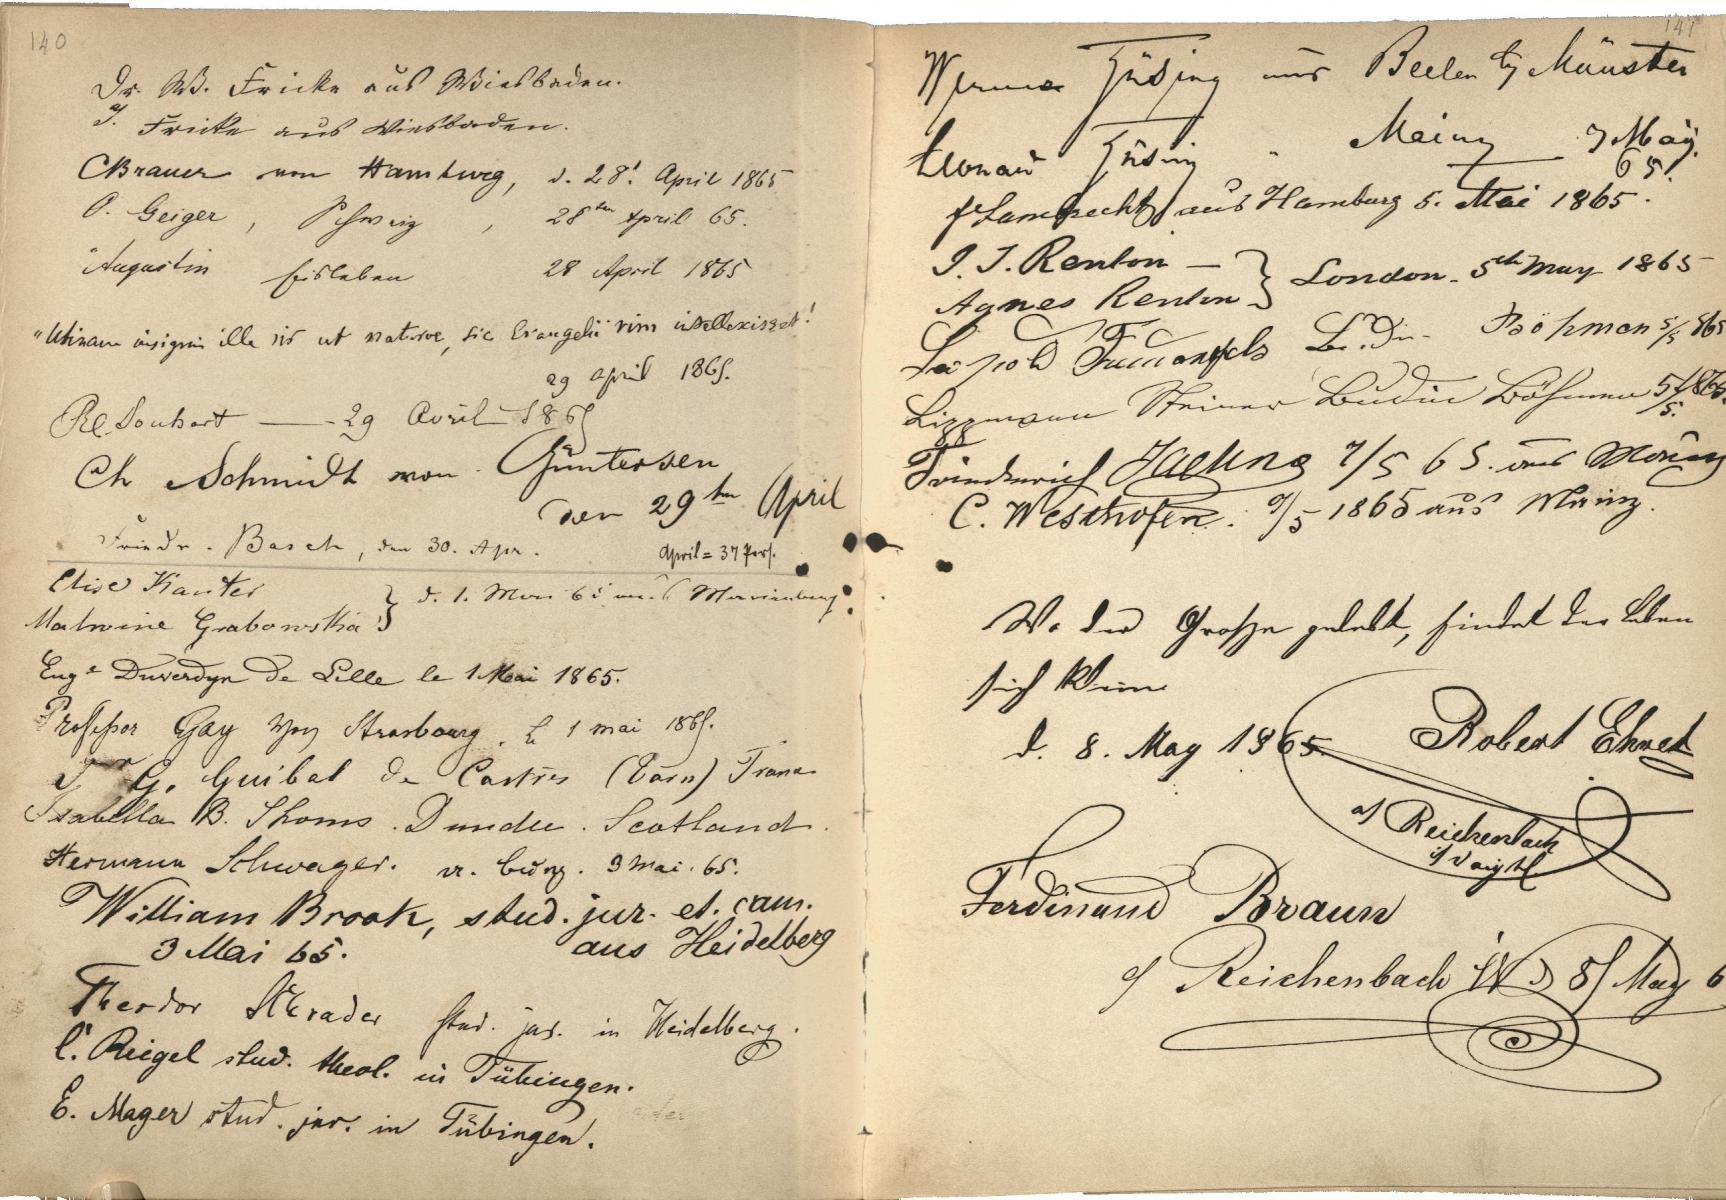 140
Dr. W. Fricke aus Wiesbaden.
Fricke aus Wiesbaden.
CBrauer von Hamburg, d. 28! April 1865
O. Geiger, Schweiz, 28ten April 65.
Augustin Eisleben 28 April 1865
"Utinam insignis ille vir ut naturae, sic Evangelii vim intellexisset!
29 April 1865.
29 Avril 1865
Ch Schmidt von Güntersen
den 29ten April
Friedr. Basch, den 30. Apr.
April = 37 Pers.
Elise Kanter
Malwine Grabowska } d. 1. Marienburg
Euge Duverdyn de Lille le 1 Mai 1865.
Professor Gay von Strasbourg. le 1 mai 1865.
G. Guibal de Castres (Tarn) France
Isabella B. Thoms. Dundee. Scotland.
Hermann Schwager. 3 Mai. 65.
William Brook, stud. jur. et. cam.
3 Mai 65. aus Heidelberg
Theodor Schrader stud. jur. in Heidelberg.
C. Reigel stud. theol. in Tübingen.
E. Mager stud. jur. in Tübingen.
141
Werner Hüsing aus Beelen bj Münster
Hüsing " Mainz 7 May
65.
Lambrecht aus Hamburg 5. Mai 1865.
J. J. Renton —
Agnes Renton } London. 5th May 1865
Leopold Budin Böhmen 5/5 865
Lippmann Steiner Budin Böhmen 5/5 865.
Friederich 7/5 65. aus Mainz
C. Westhofen. 9/5 1865 aus Mainz.
Wo der Große gelebt, findet das Leben
sich klein
d. 8. May 1865. Robert Ehret
a/ Reichenbach
i/ Voigtl
Ferdinand Braun
a/ Reichenbach i/V d 8/ May 6